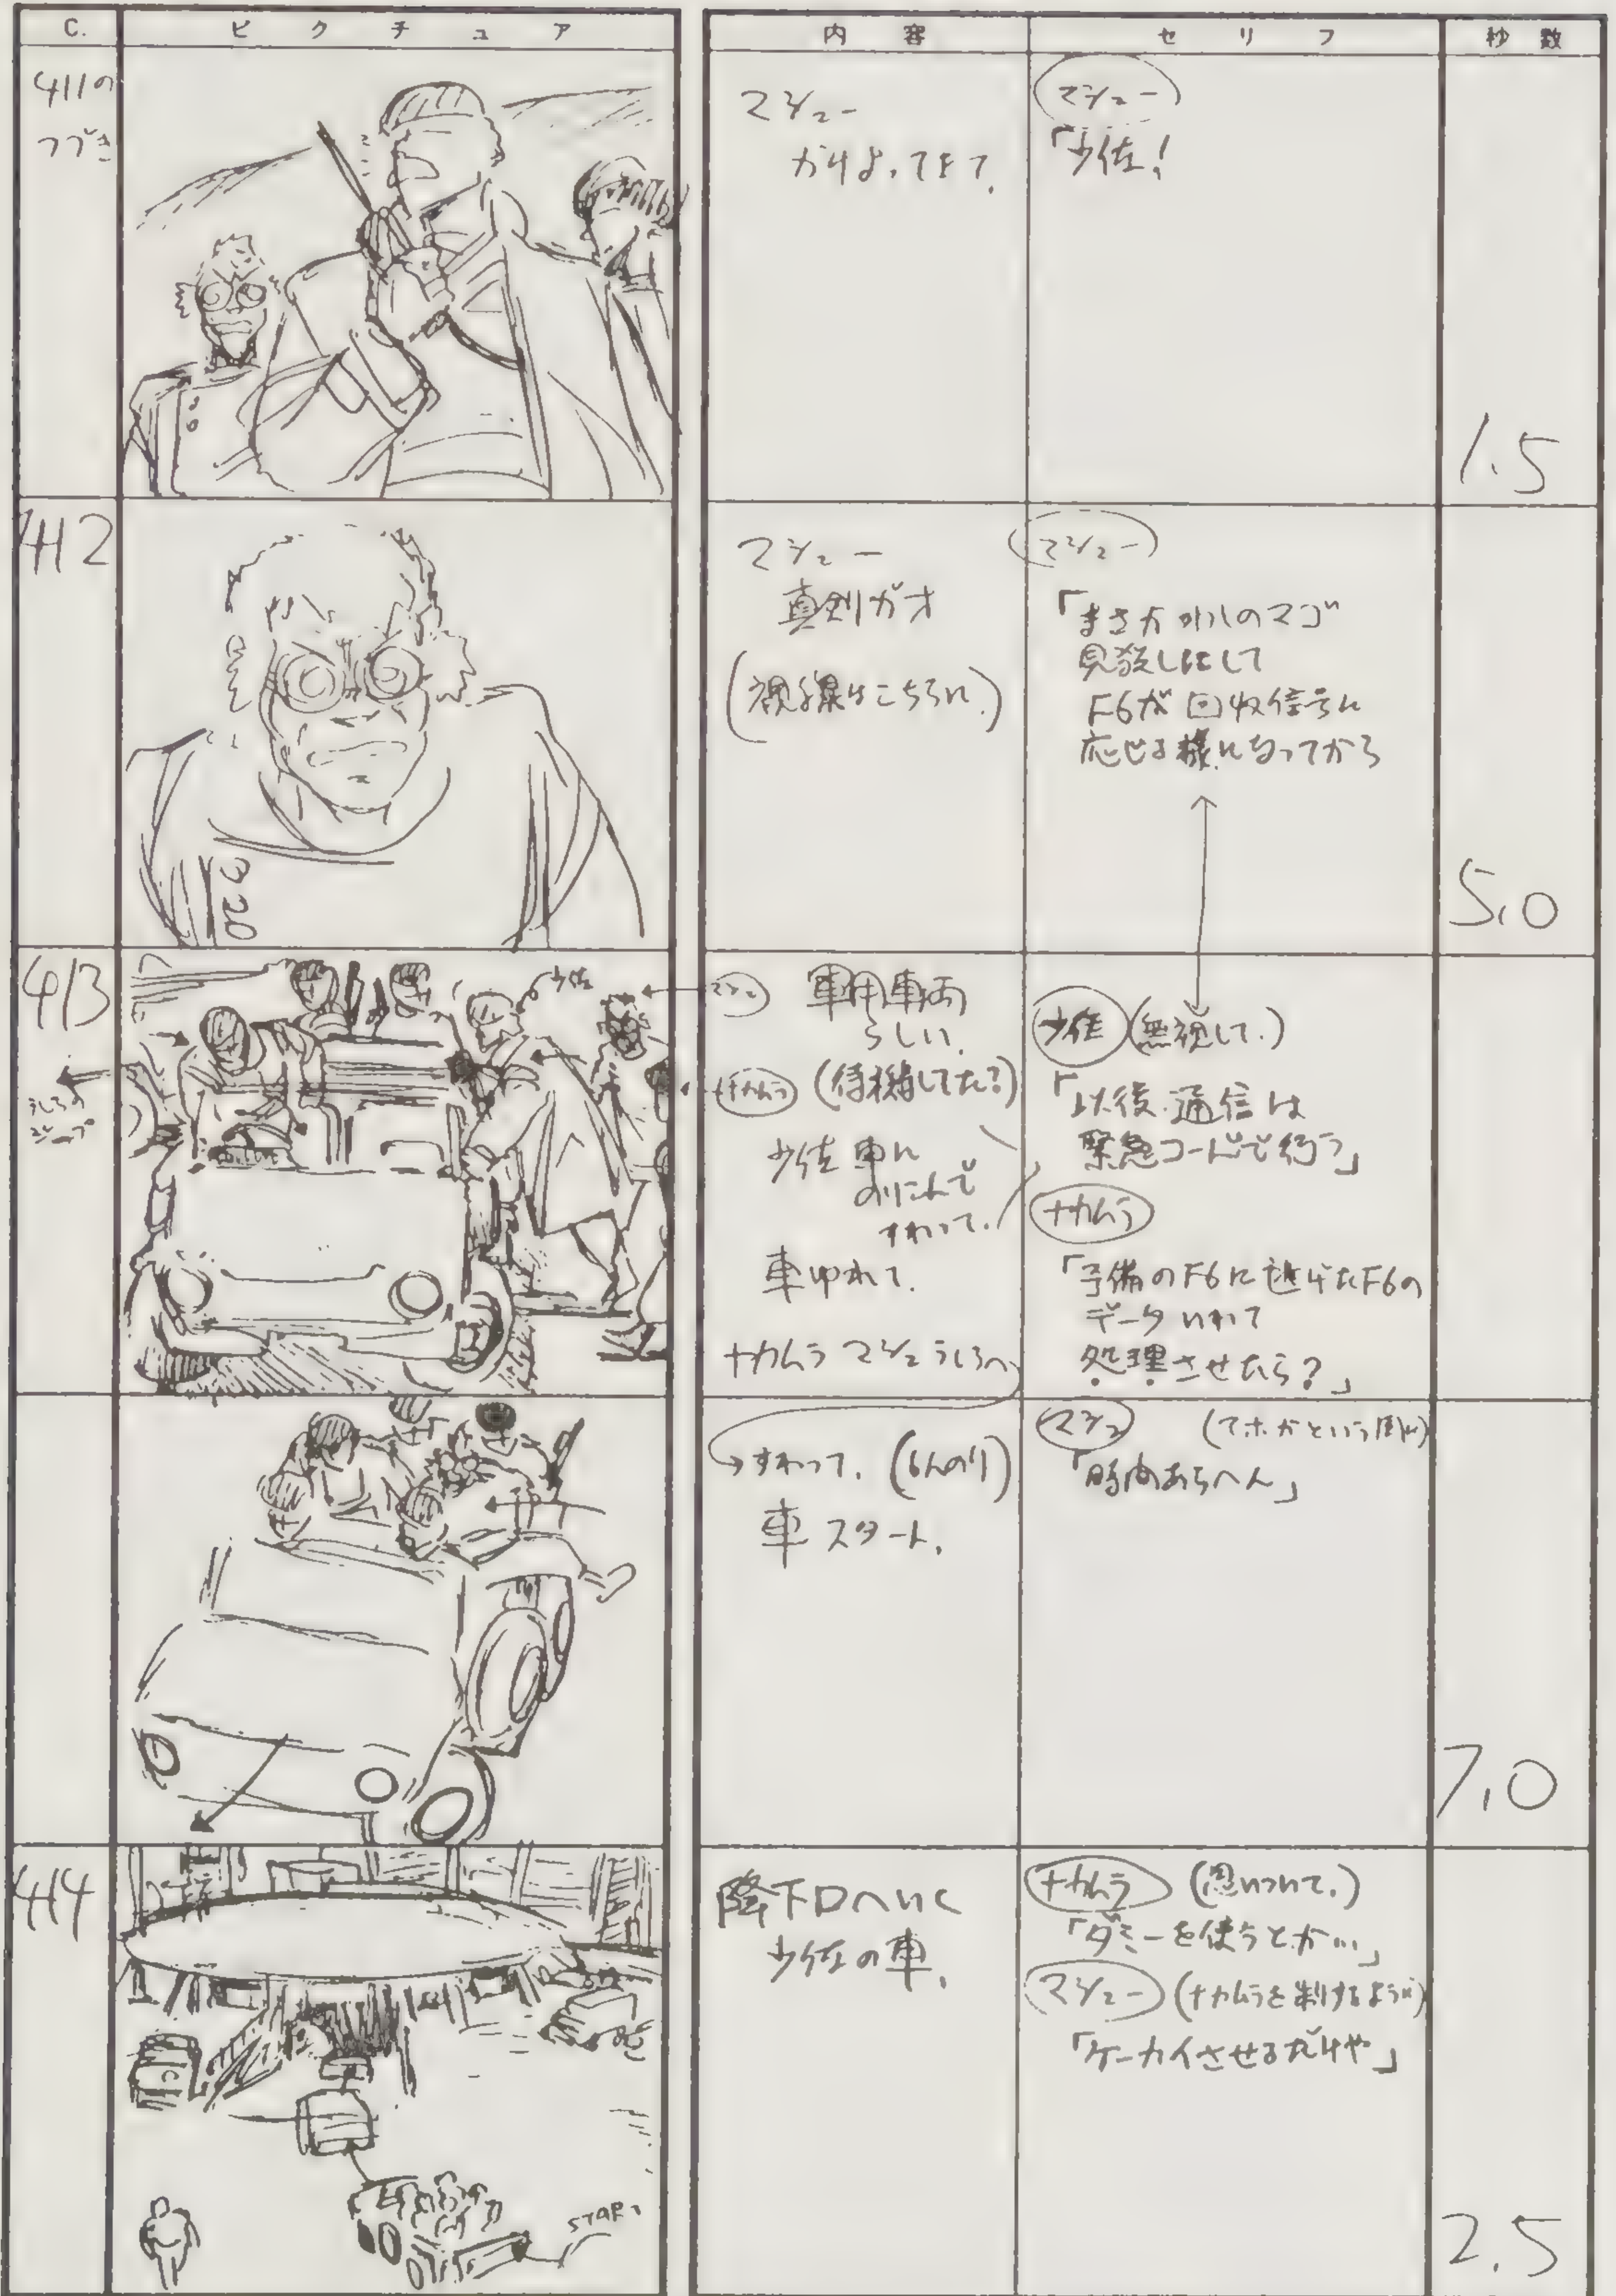 C.
ピクチュア
内容
セリフ
秒数
411の
つづき
マシュー
かけよってきて.
マシュー
「少佐!
1.5
412
マシュー
真剣ガオ
(視線はこちらに.)
マシュー
「まさか わしのマゴ
見殺しにして
F6が 回収信号に
応じる様になってから
5.0
413
少佐
うしろの
ジープ
マシュー
ナカムラ
軍用車両
らしい.
(待機してた?)
少佐 車に
のりこんで
すわって.
車ゆれて.
ナカムラ マシュ うしろへ
少佐 (無視して.)
「以後.通信は
緊急コードで行う」
ナカムラ
「予備のF6に逃げたF6の
データ いれて
処理させたら?」
すわって. (6人のり)
車 スタート.
マシュ
「時間あらへん」
7.0
414
START
降下口へいく
少佐の車.
ナカムラ (思いついて.)
「ダミーを使うとか…」
マシュー (ナカムラを制するように)
「ケーカイさせるだけや」
2.5